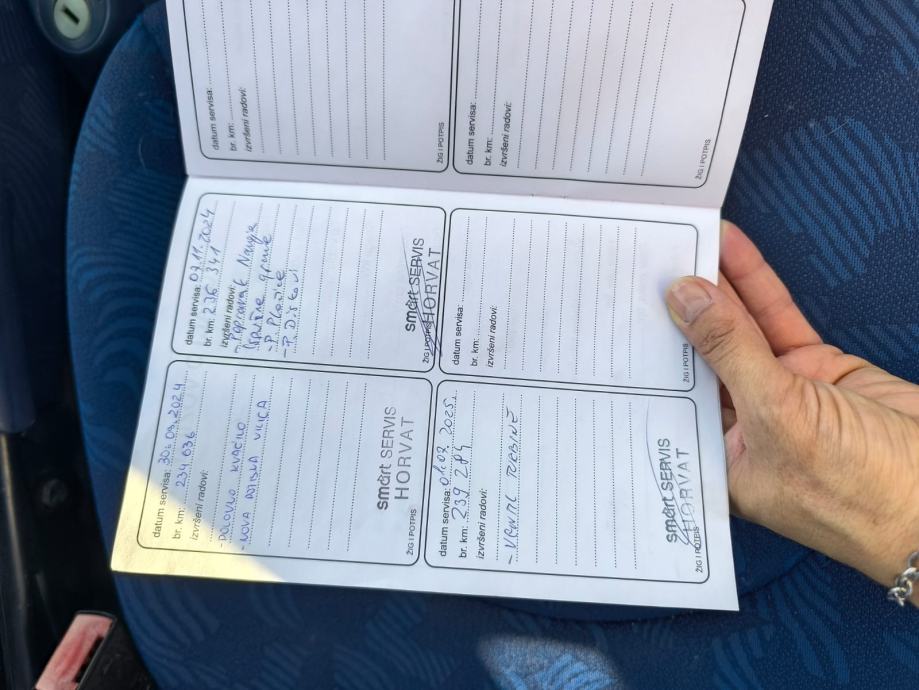 datum servisa:
br. km:
izvršeni radovi:
ŽIG I POTPIS
datum servisa:
br. km:
izvršeni radovi:
ŽIG I POTPIS
datum servisa: 30.09.2024.
br. km: 234 636
izvršeni radovi:
-POLOVNO KVAČILO
-NOVA POTISNA VILICA
smart SERVIS
HORVAT
ŽIG I POTPIS
datum servisa: 07.11.2024
br. km: 236 341
izvršeni radovi:
-P. Pločice
-P. Diskovi
smart SERVIS
HORVAT
ŽIG I POTPIS
datum servisa: 01.07.2025.
br. km: 239 284
izvršeni radovi:
-VENTIL TURBINE
smart SERVIS
HORVAT
ŽIG I POTPIS
datum servisa:
br. km:
izvršeni radovi: